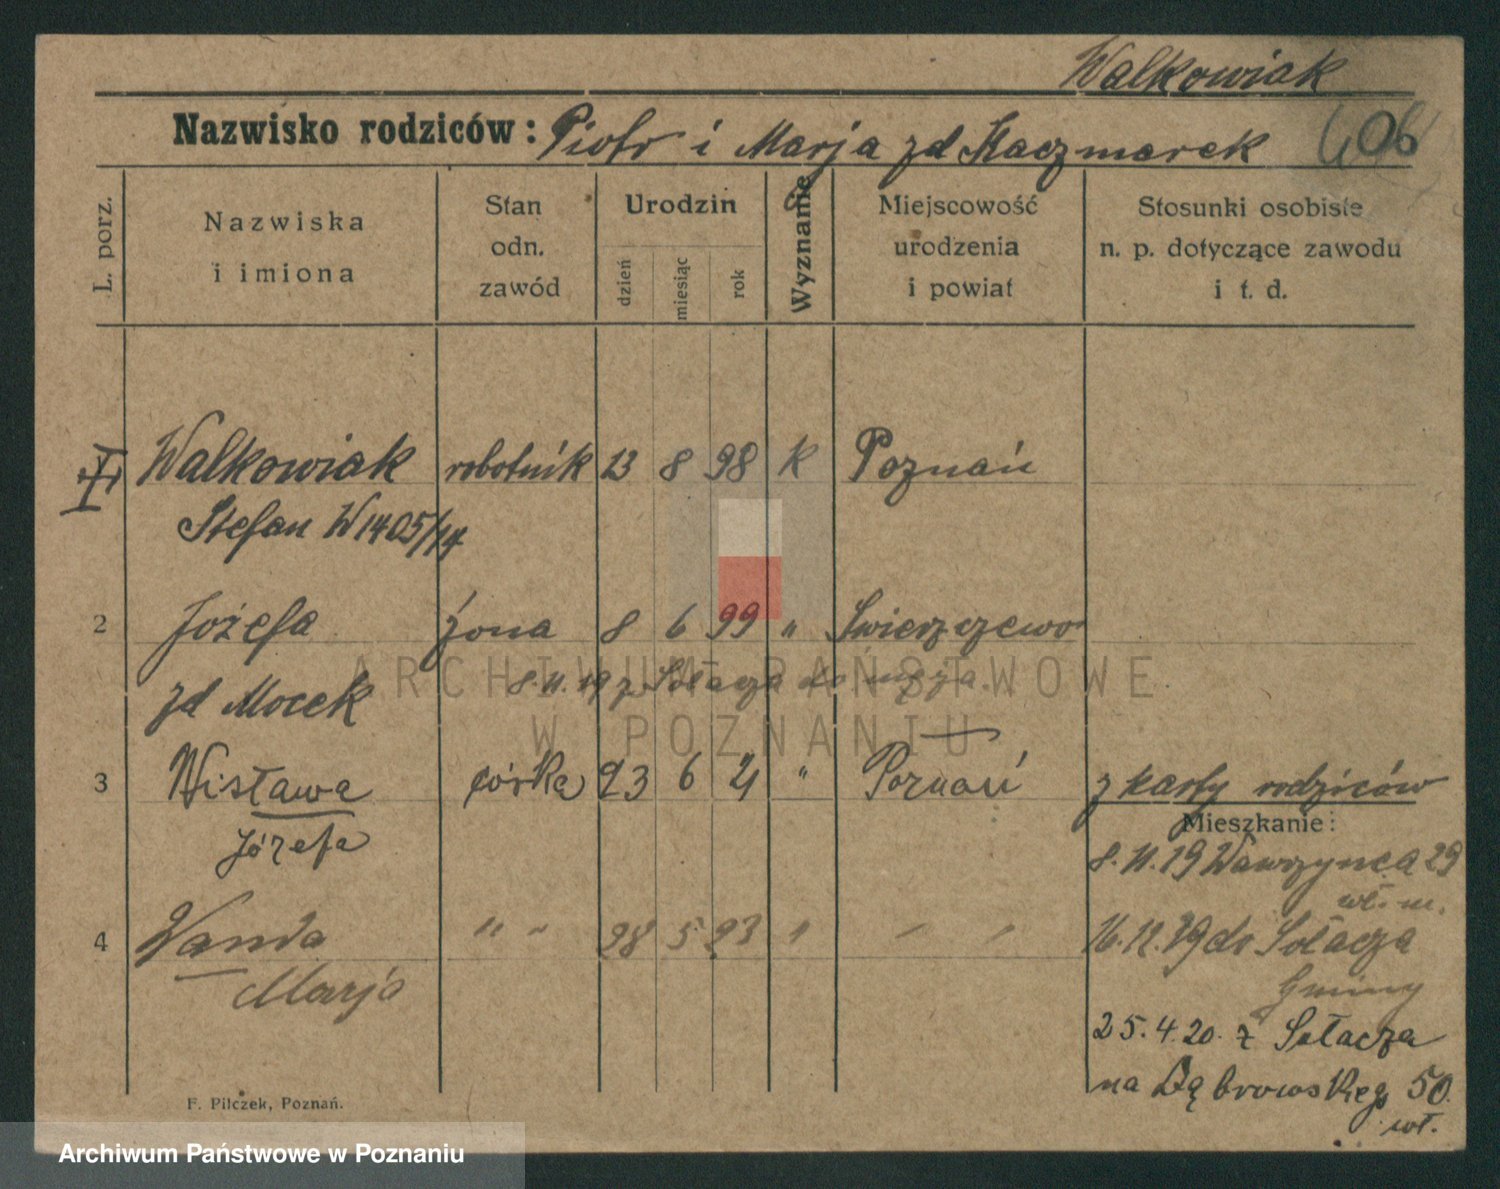 Walkowiak
Nazwisko rodziców: Piotr i Marja zd Kaczmarek
L. porz.
Nazwiska
i imiona
Stan
odn.
zawód
Urodzin
dzień
miesiąc
rok
Wyznanie
Miejscowość
urodzenia
i powiat
Stosunki osobiste
n. p. dotyczące zawodu
i t. d.
Walkowiak robotnik 13 8 98 k Poznań
Stefan W1405/14
2 Józefa żona 8 6 99 " Świerczewo
zd Mocek 8.11.19 z Sołacza do męża
3 Wisława córka 23 6 21 " Poznań z karty rodziców
Józefa
Mieszkanie:
8.11.19 Wawrzynca 29
wł. m.
4 Wanda " " 28 5 23 " " "
Marja
16.12.19 do Sołacza
Gminy
25.4.20. z Sołacza
na Dąbrowskieg 50.
wł.
F. Pilczek, Poznań.
ARCHIWUM PAŃSTWOWE
W POZNANIU
Archiwum Państwowe w Poznaniu